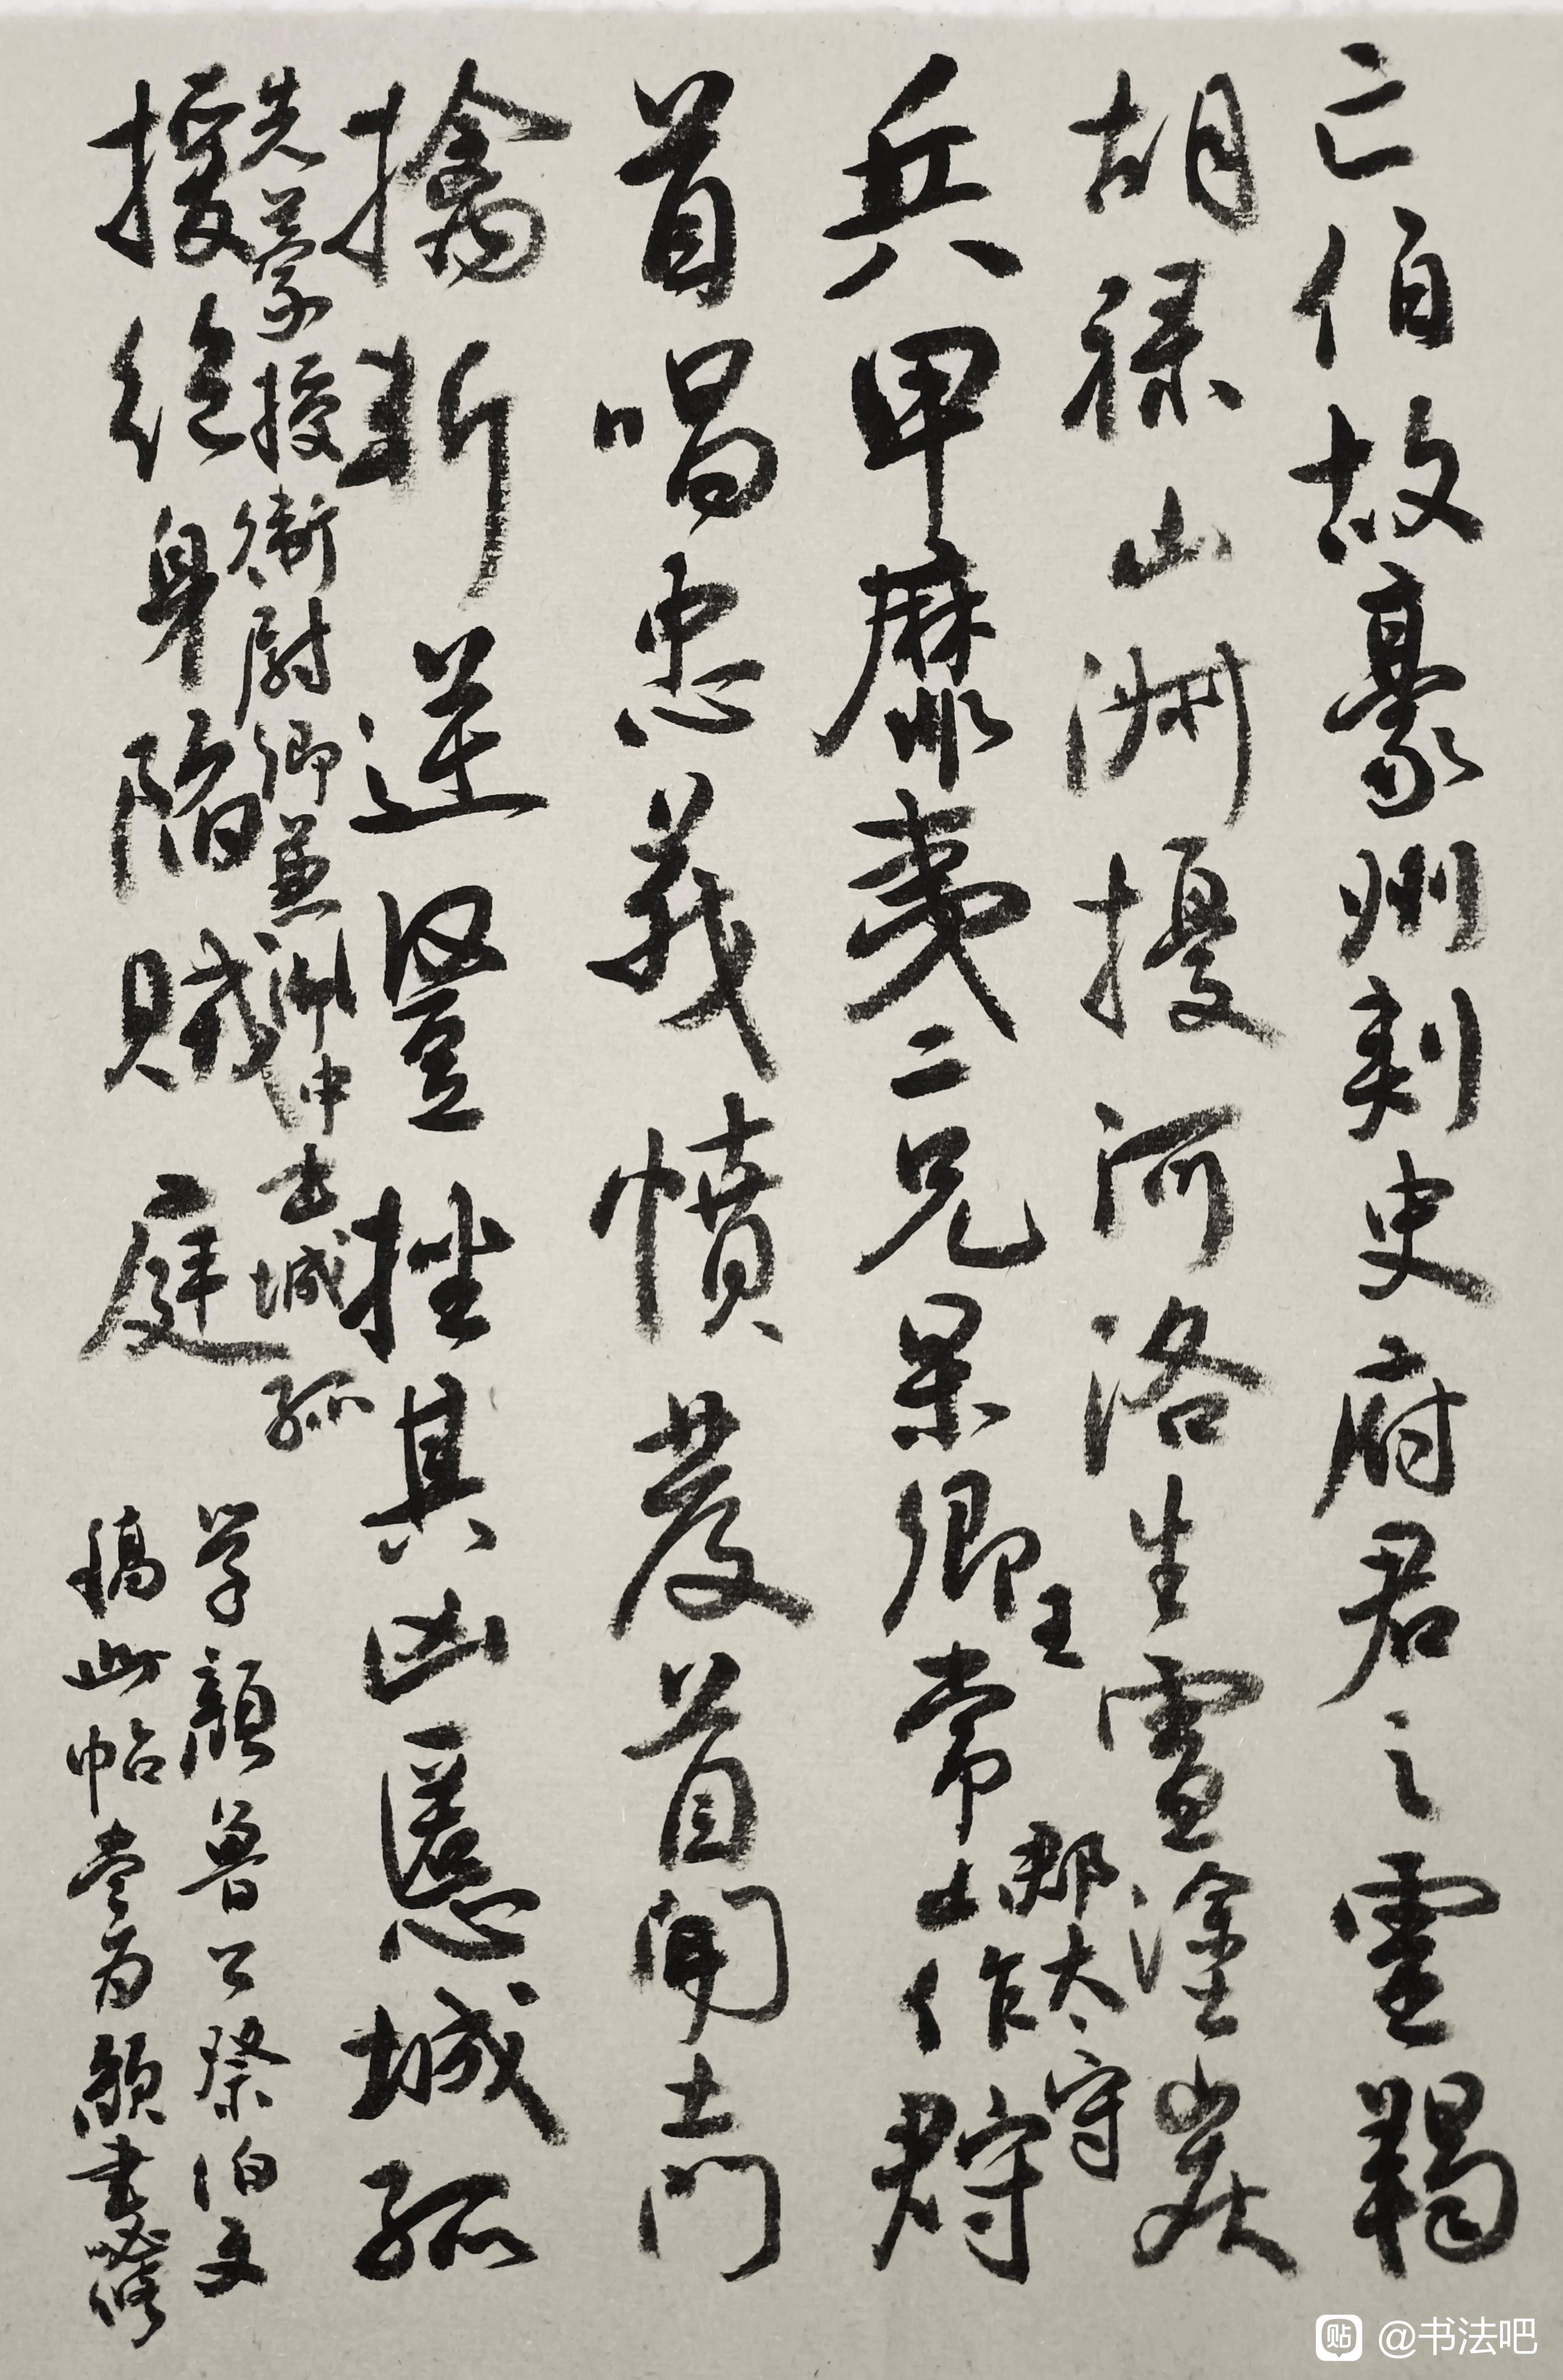 亡伯故豪州刺史府君之靈羯
胡祿山擾河洛生靈塗炭
王郡太守
兵甲靡夷二兄杲卿常山作郡守
首唱忠義憤發首開土門
擒斬逆豎挫其凶慝城孤
先蒙授衛尉卿兼中去城孤
援絕身陷賊庭
学顏魯公祭伯文
稿此帖當为顏書必修
@书法吧